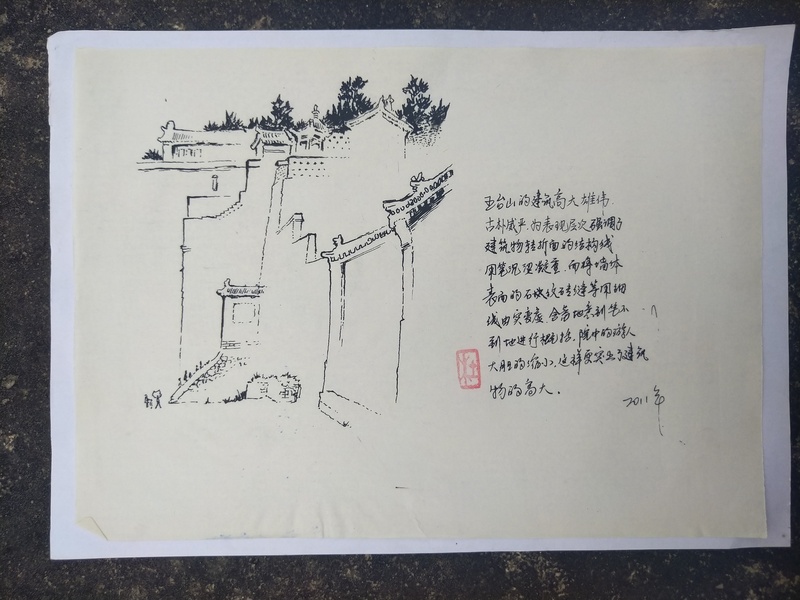 五台山的建筑高大雄伟
古朴威严.为表现层次强调了
建筑物转折面的结构线
用笔沉坚凝重,而将墙体
表面的石块纹砖缝等用细
线由实虚虚,含蓄地意到笔不
到地进行概括,院中的游人
大胆的缩小,这样更突出了建筑
物的高大.
2011年